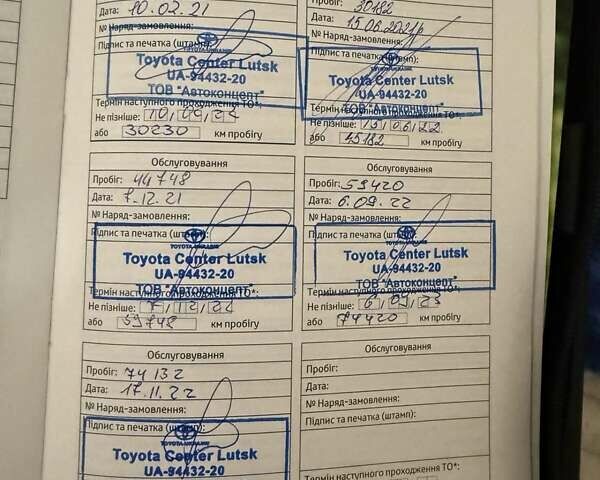 Дата: 10.02.21
№ Наряд-замовлення:
Підпис та печатка (штамп):
Toyota Center Lutsk
UA-94432-20
ТОВ "Автоконцепт"
Термін наступного проходження ТО*:
Не пізніше:
або 30230 км пробігу
Пробіг: 30182
Дата: 15.06.2021р
№ Наряд-замовлення:
Підпис та печатка (штамп):
Toyota Center Lutsk
UA-94432-20
ТОВ "Автоконцепт"
Термін наступного проходження ТО*:
Не пізніше: 15.06.22
або 45182 км пробігу
Обслуговування
Пробіг: 44748
Дата: 7.12.21
№ Наряд-замовлення:
Підпис та печатка (штамп):
TOYOTA UKRAINE
Toyota Center Lutsk
UA-94432-20
ТОВ "Автоконцепт"
Термін наступного проходження ТО*:
Не пізніше: 7.12.22
або 59748 км пробігу
Обслуговування
Пробіг: 59420
Дата: 6.09.22
№ Наряд-замовлення:
Підпис та печатка (штамп):
TOYOTA UKRAINE
Toyota Center Lutsk
UA-94432-20
ТОВ "Автоконцепт"
Термін наступного проходження ТО*:
Не пізніше: 6.09.23
або 74420 км пробігу
Обслуговування
Пробіг: 74132
Дата: 17.11.22
№ Наряд-замовлення:
Підпис та печатка (штамп):
TOYOTA UKRAINE
Toyota Center Lutsk
UA-94432-20
Обслуговування
Пробіг:
Дата:
№ Наряд-замовлення:
Підпис та печатка (штамп):
Термін наступного проходження ТО*: